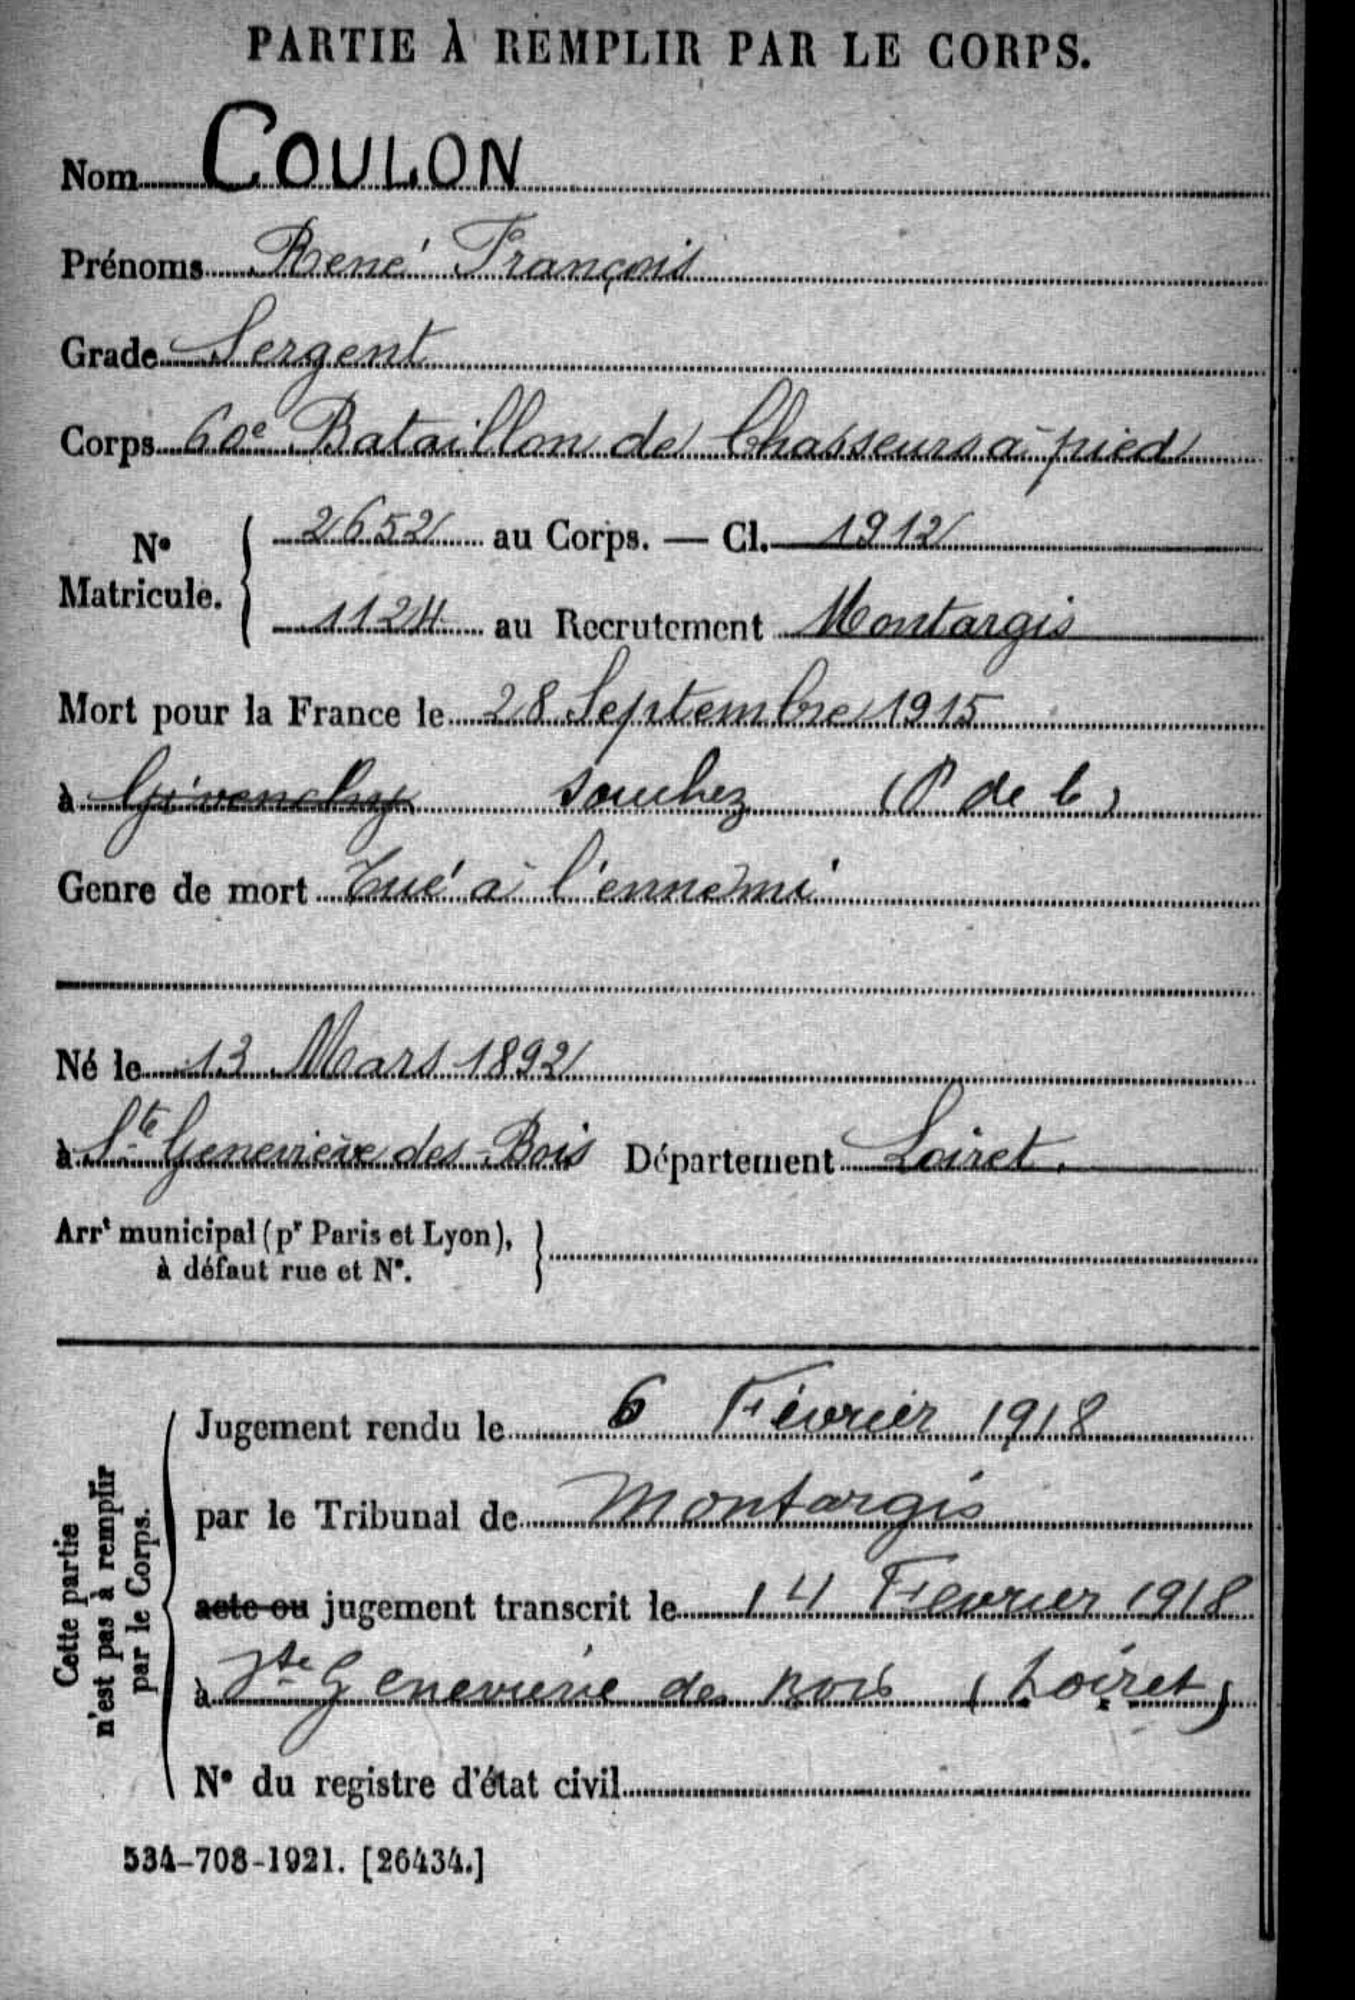 PARTIE À REMPLIR PAR LE CORPS.
Nom COULON
Prénoms René François
Grade Sergent
Corps 60e Bataillon de Chasseurs à pied
N° Matricule. { 2652 au Corps. — Cl. 1912
1124 au Recrutement Montargis
Mort pour la France le 28 Septembre 1915
à Givenchy Souchez (P de C)
Genre de mort Tué à l'ennemi
Né le 13 Mars 1892
à Ste Geneviève des Bois Département Loiret.
Arrt municipal (pr Paris et Lyon), }
à défaut rue et N°.
Cette partie
n'est pas à remplir
par le Corps.
Jugement rendu le 6 Février 1918
par le Tribunal de Montargis
acte ou jugement transcrit le 14 Fevrier 1918
à Ste Genevieve des Bois (Loiret)
N° du registre d'état civil
534-708-1921. [26434.]